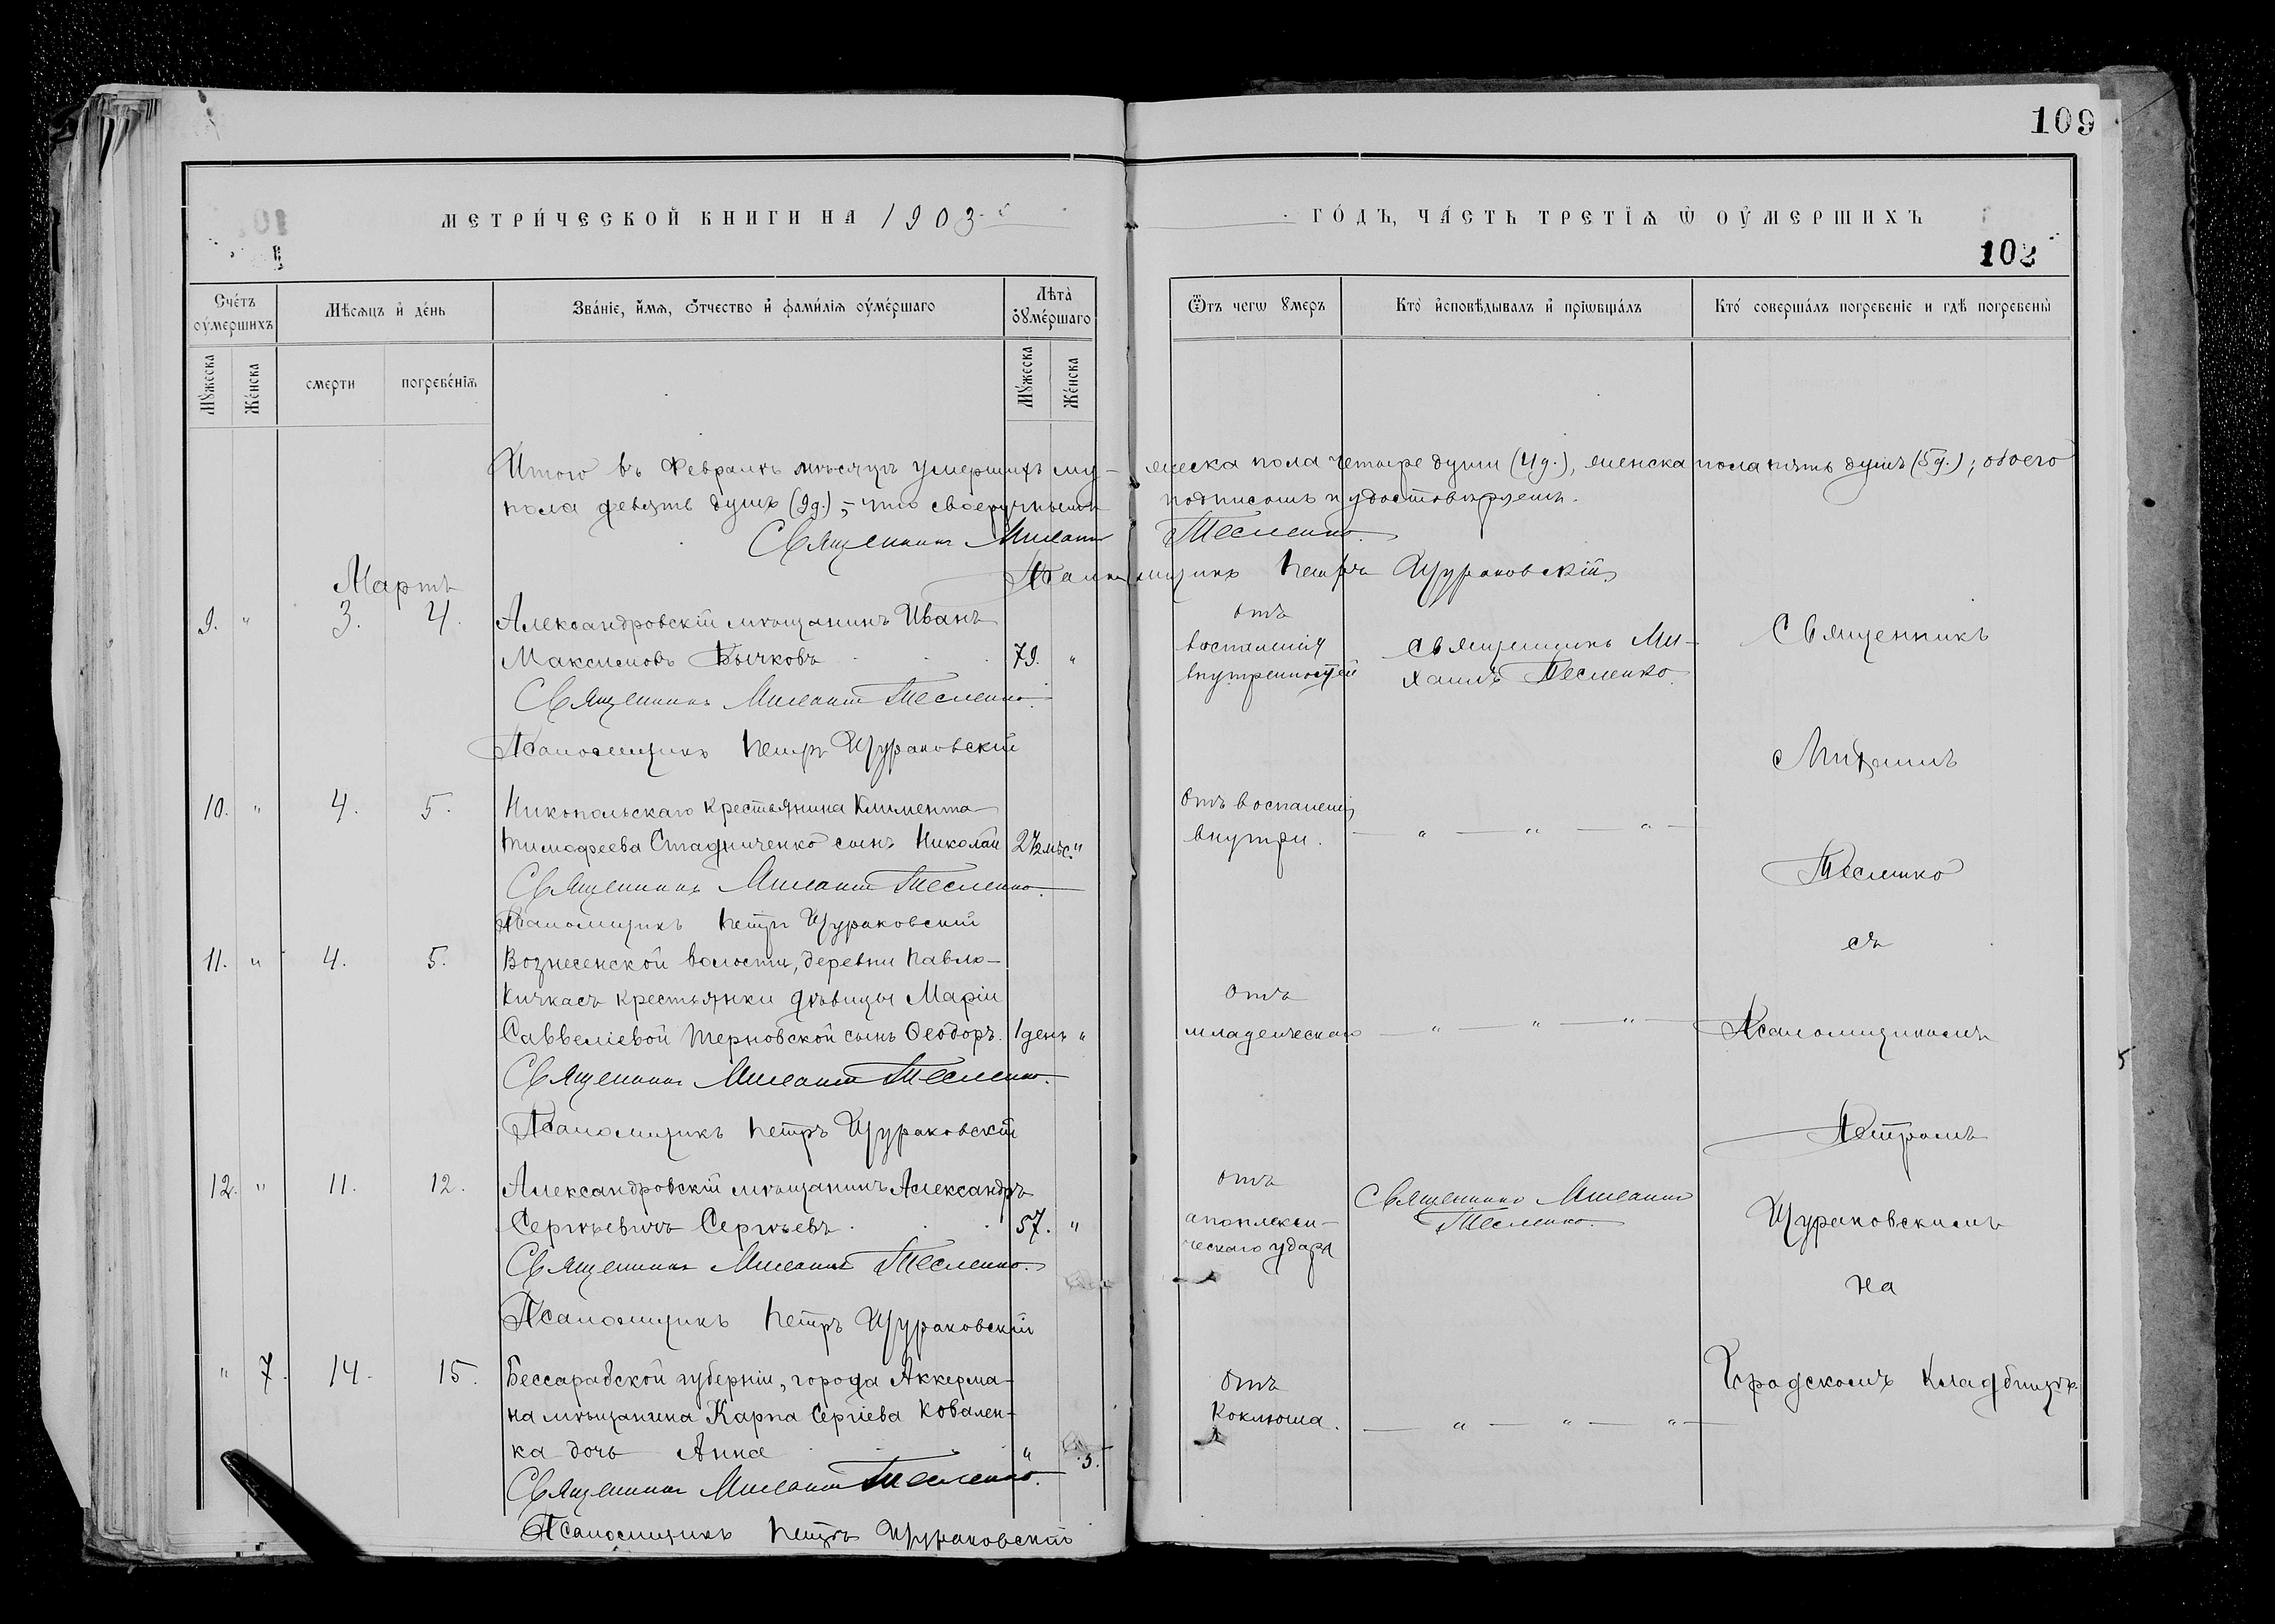 109
МЕТРИ́ЧЕСКОЙ КНИГИ НА 1903.
ГО́ДЪ, ЧА́СТЬ ТРЕТІѦ Ѡ ОУ҆МЕРШИХЪ
102
Сче́тъ оу҆ме́ршихъ
Мѣсѧцъ и҆ де́нь
Зва́ніе, и҆́мѧ, ѻ҆́тчество и҆ фами́лїѧ оу҆ме́ршаго
Лѣта̀ оу҆ме́ршаго
Ѿтъ чегѡ ᲂумеръ
Кто̀ и҆сповѣ́дывалъ и҆ прїѡбща́лъ
Кто́ соверша́лъ погребе́ніе и гдѣ̀ погребены̀
Мꙋ́жеска
Же́нска
смерти
погребе́нїѧ
Мꙋ́жеска
Же́нска
Итого въ Февралѣ мѣсяцѣ умершихъ му- жеска пола четыре души (4 д.), женска пола пять душъ (5 д.); обоего
пола девять душъ (9 д.), – что своеручнымъ подписомъ и удостовѣряемъ.
Священникъ Михаилъ Тесленко.
Псаломщикъ Петръ Щураковскій
Мартъ
9. " 3. 4. Александровскій мѣщанинъ Иванъ
Максимовъ Бычковъ 79. "
Священникъ Михаилъ Тесленко.
Псаломщикъ Петръ Щураковскій
отъ
воспаленія
внутренностей
Священникъ Ми-
хаилъ Тесленко.
Священникъ
Михаилъ
10. " 4. 5. Никопольскаго крестьянина Климента
Тимофеева Стадниченко сынъ Николай 2½ мѣс. "
Священникъ Михаилъ Тесленко.
Псаломщикъ Петръ Щураковскій
отъ воспаленія
внутри.
— " — " — " —
Тесленко
съ
11. " 4. 5. Вознесенской волости, деревни Павло-
Кичкасъ крестьянки дѣвицы Маріи
Саввеліевой Терновской сынъ Ѳеодоръ. 1 день "
Священникъ Михаилъ Тесленко.
Псаломщикъ Петръ Щураковскій
отъ
младенческаго
— " — " — " —
Псаломщикомъ
Петромъ
12. " 11. 12. Александровскій мѣщанинъ Александръ
Сергѣевичъ Сергѣевъ 57. "
Священникъ Михаилъ Тесленко.
Псаломщикъ Петръ Щураковскій
отъ
апоплекси-
ческаго удара
Священникъ Михаилъ
Тесленко.
Щураковскимъ
на
" 7. 14. 15. Бессарабской губерніи, города Аккерма-
на мѣщанина Карпа Сергіева Ковален-
ка дочь Анна " 3.
Священникъ Михаилъ Тесленко.
Псаломщикъ Петръ Щураковскій
отъ
Коклюша.
— " — " — " —
Городскомъ кладбищѣ.